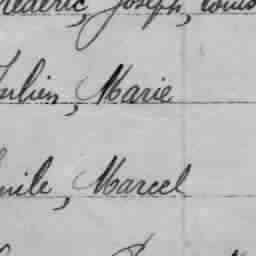 rédéric, Joseph, Louis
Julien, Marie
mile, Marcel